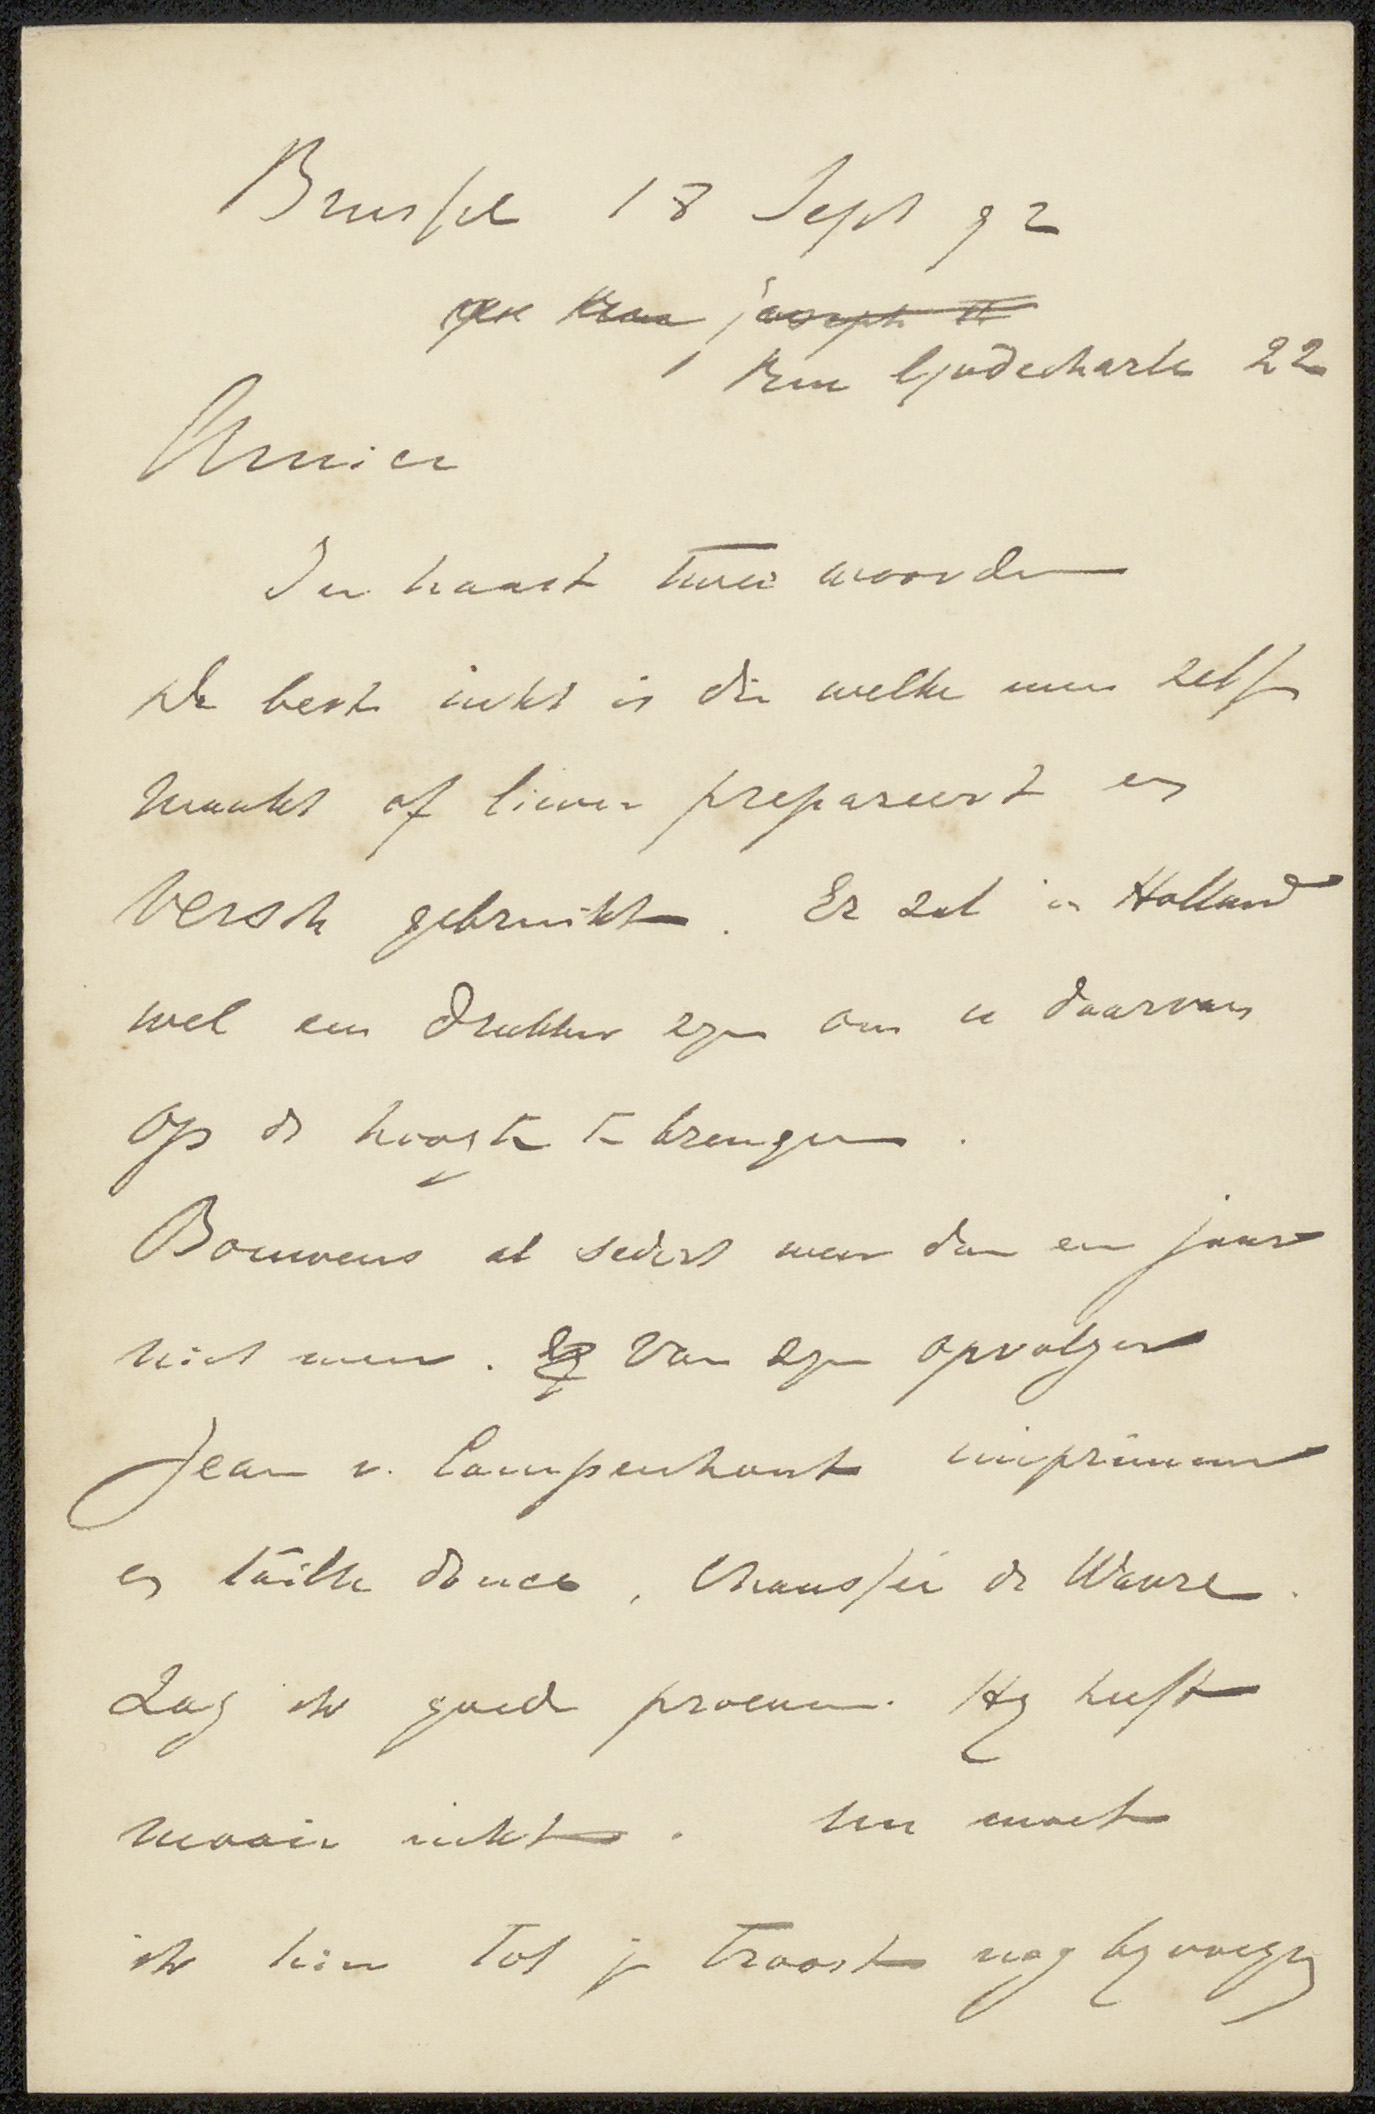 Brussel 18 Sept 92
Rue joseph II
Rue Godecharle 22
Amice
In haast twee woorden
De beste inkt is die welke men zelf
maakt of liever prepareert en
versch gebruikt. Er zal in Holland
wel een drukker zyn om u daarvan
op de hoogte te brengen.
Bouwens al sedert meer dan een jaar
niet meer. Van zyn opvolger
Jean v. Campenhout imprimeur
en taille douce, Chaussée de Wavre.
Zag ik goede proeven. Hy heeft
mooie inkt. Nu moet
ik hier tot je troost nog byvoegen